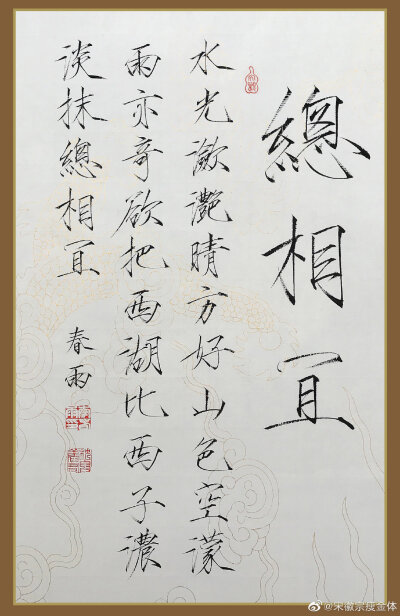 總相宜
水光瀲灧晴方好山色空濛
雨亦奇欲把西湖比西子濃
淡抹總相宜
春雨
@宋徽宗瘦金体